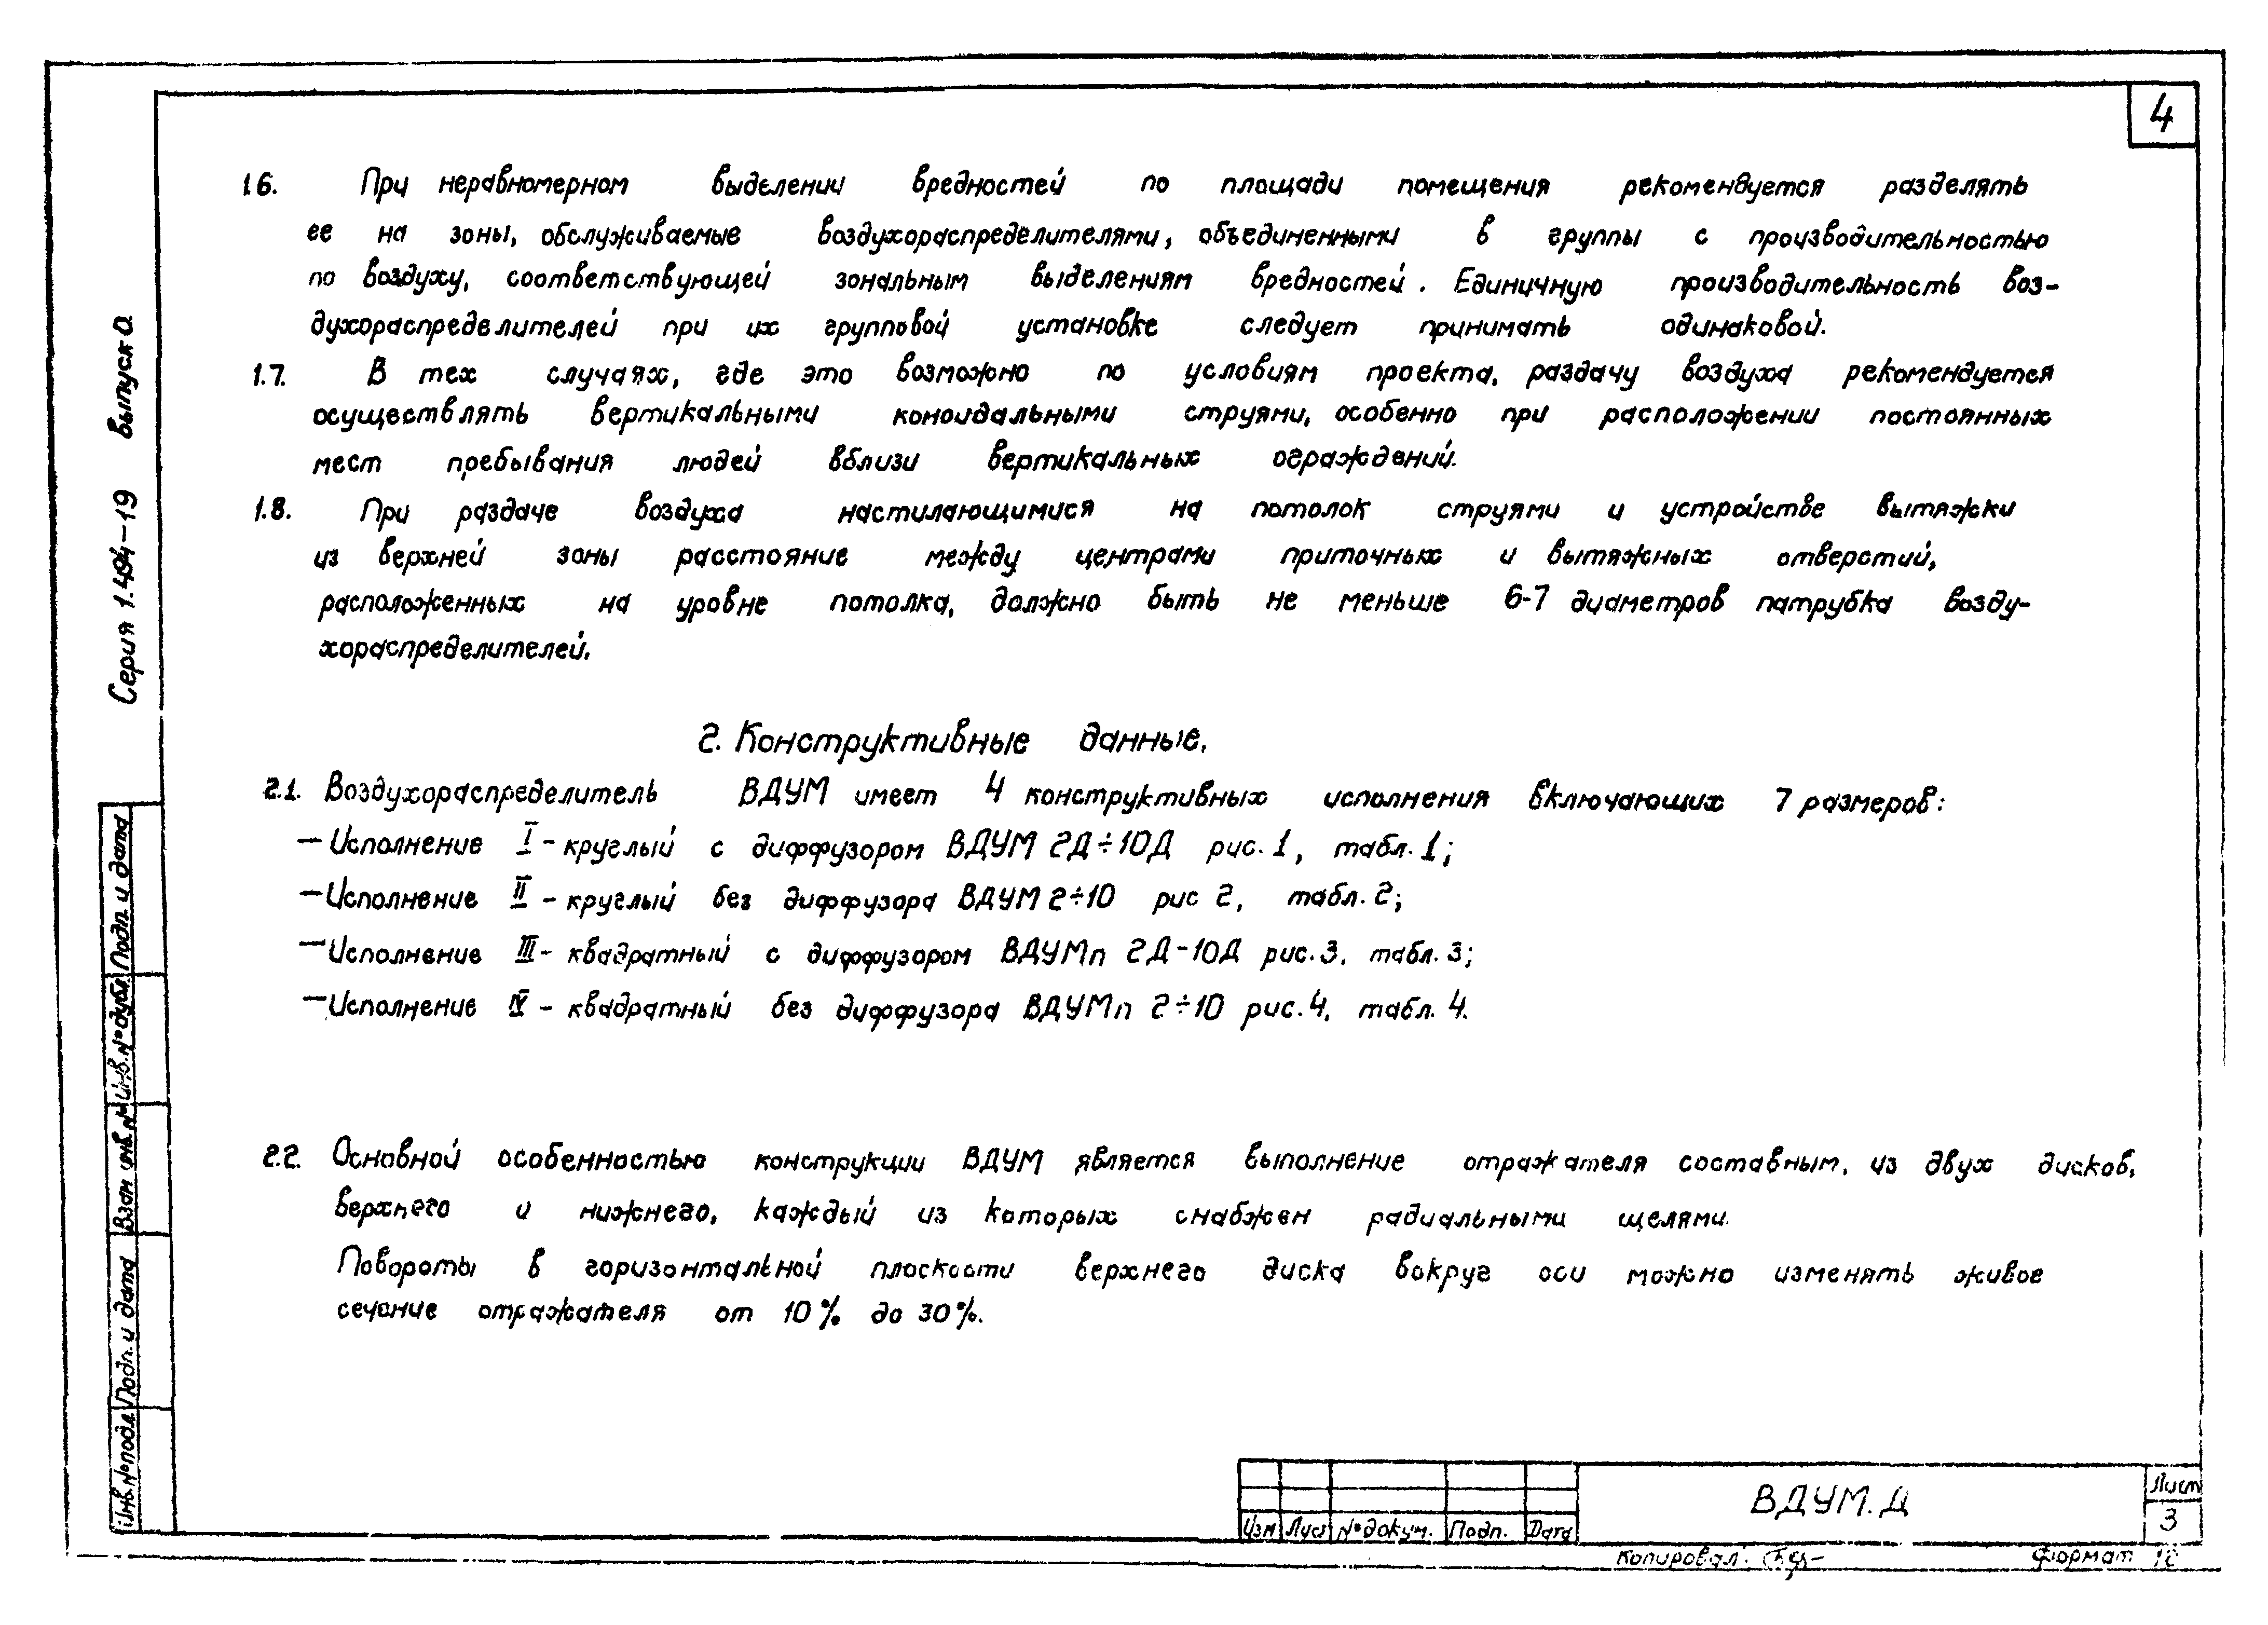 4
1.6. При неравномерном выделении вредностей по площади помещения рекомендуется разделять
ее на зоны, обслуживаемые воздухораспределителями, объединенными в группы с производительностью
по воздуху, соответствующей зональным выделениям вредностей. Единичную производительность воз-
духораспределителей при их групповой установке следует принимать одинаковой.
1.7. В тех случаях, где это возможно по условиям проекта, раздачу воздуха рекомендуется
осуществлять вертикальными коноидальными струями, особенно при расположении постоянных
мест пребывания людей вблизи вертикальных ограждений.
1.8. При раздаче воздуха настилающимися на потолок струями и устройстве вытяжки
из верхней зоны расстояние между центрами приточных и вытяжных отверстий,
расположенных на уровне потолка, должно быть не меньше 6-7 диаметров патрубка возду-
хораспределителей.
2. Конструктивные данные.
2.1. Воздухораспределитель ВДУМ имеет 4 конструктивных исполнения включающих 7 размеров:
— Исполнение I - круглый с диффузором ВДУМ 2Д÷10Д рис. 1, табл. 1;
— Исполнение II - круглый без диффузора ВДУМ 2÷10 рис 2, табл. 2;
— Исполнение III - квадратный с диффузором ВДУМп 2Д-10Д рис. 3, табл. 3;
— Исполнение IV - квадратный без диффузора ВДУМп 2÷10 рис. 4, табл. 4.
2.2. Основной особенностью конструкции ВДУМ является выполнение отражателя составным, из двух дисков,
верхнего и нижнего, каждый из которых снабжен радиальными щелями.
Повороты в горизонтальной плоскости верхнего диска вокруг оси можно изменять живое
сечение отражателя от 10% до 30%.
Серия 1.494-19 выпуск 0
Подп. и дата
Инв. № дубл.
Взам инв. №
Подп. и дата
Инв. № подл
Изм Лист № докум. Подп. Дата
ВДУМ.Д
Лист
3
Копировал:
Формат 12